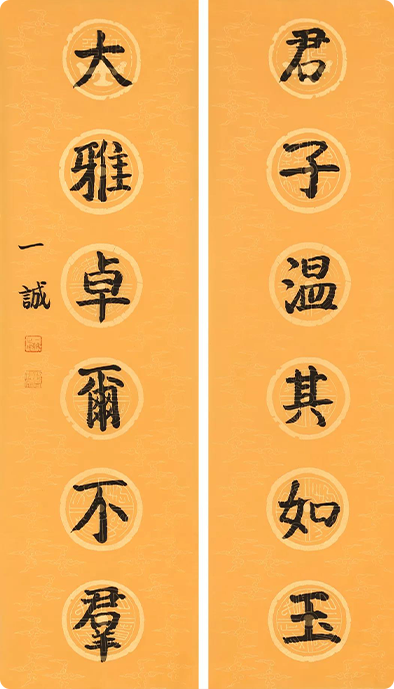 君子温其如玉
大雅卓爾不羣
一誠